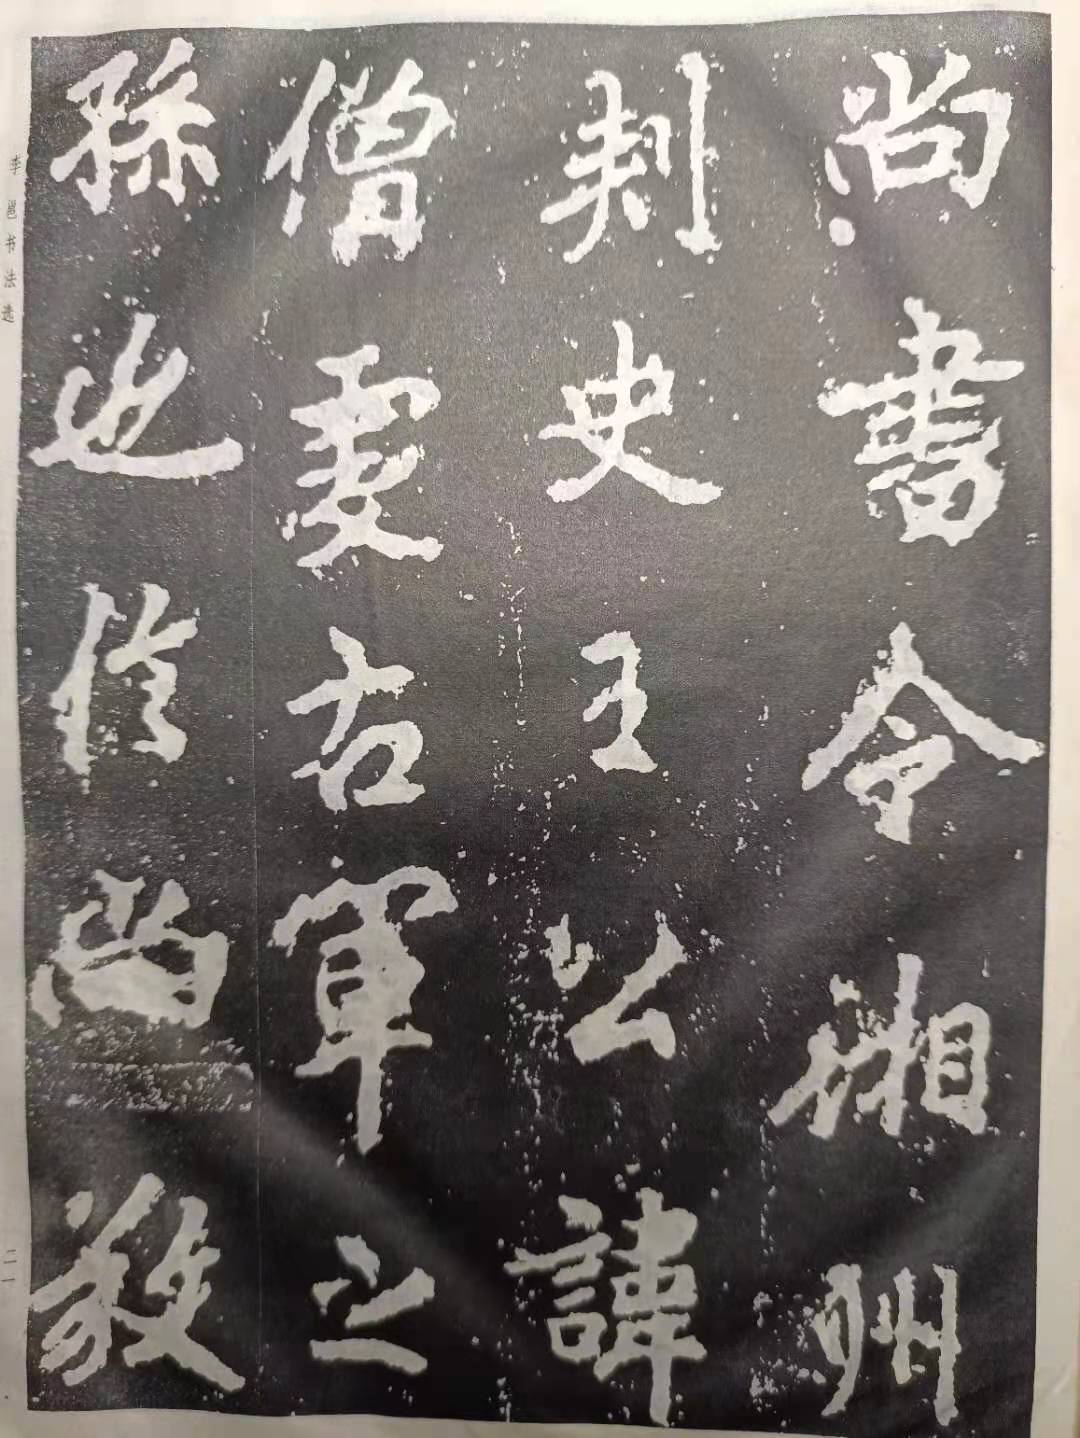 尚書令湘州
刺史王公諱
僧虔右軍之
孫也信尚敬
李邕书法选
二一